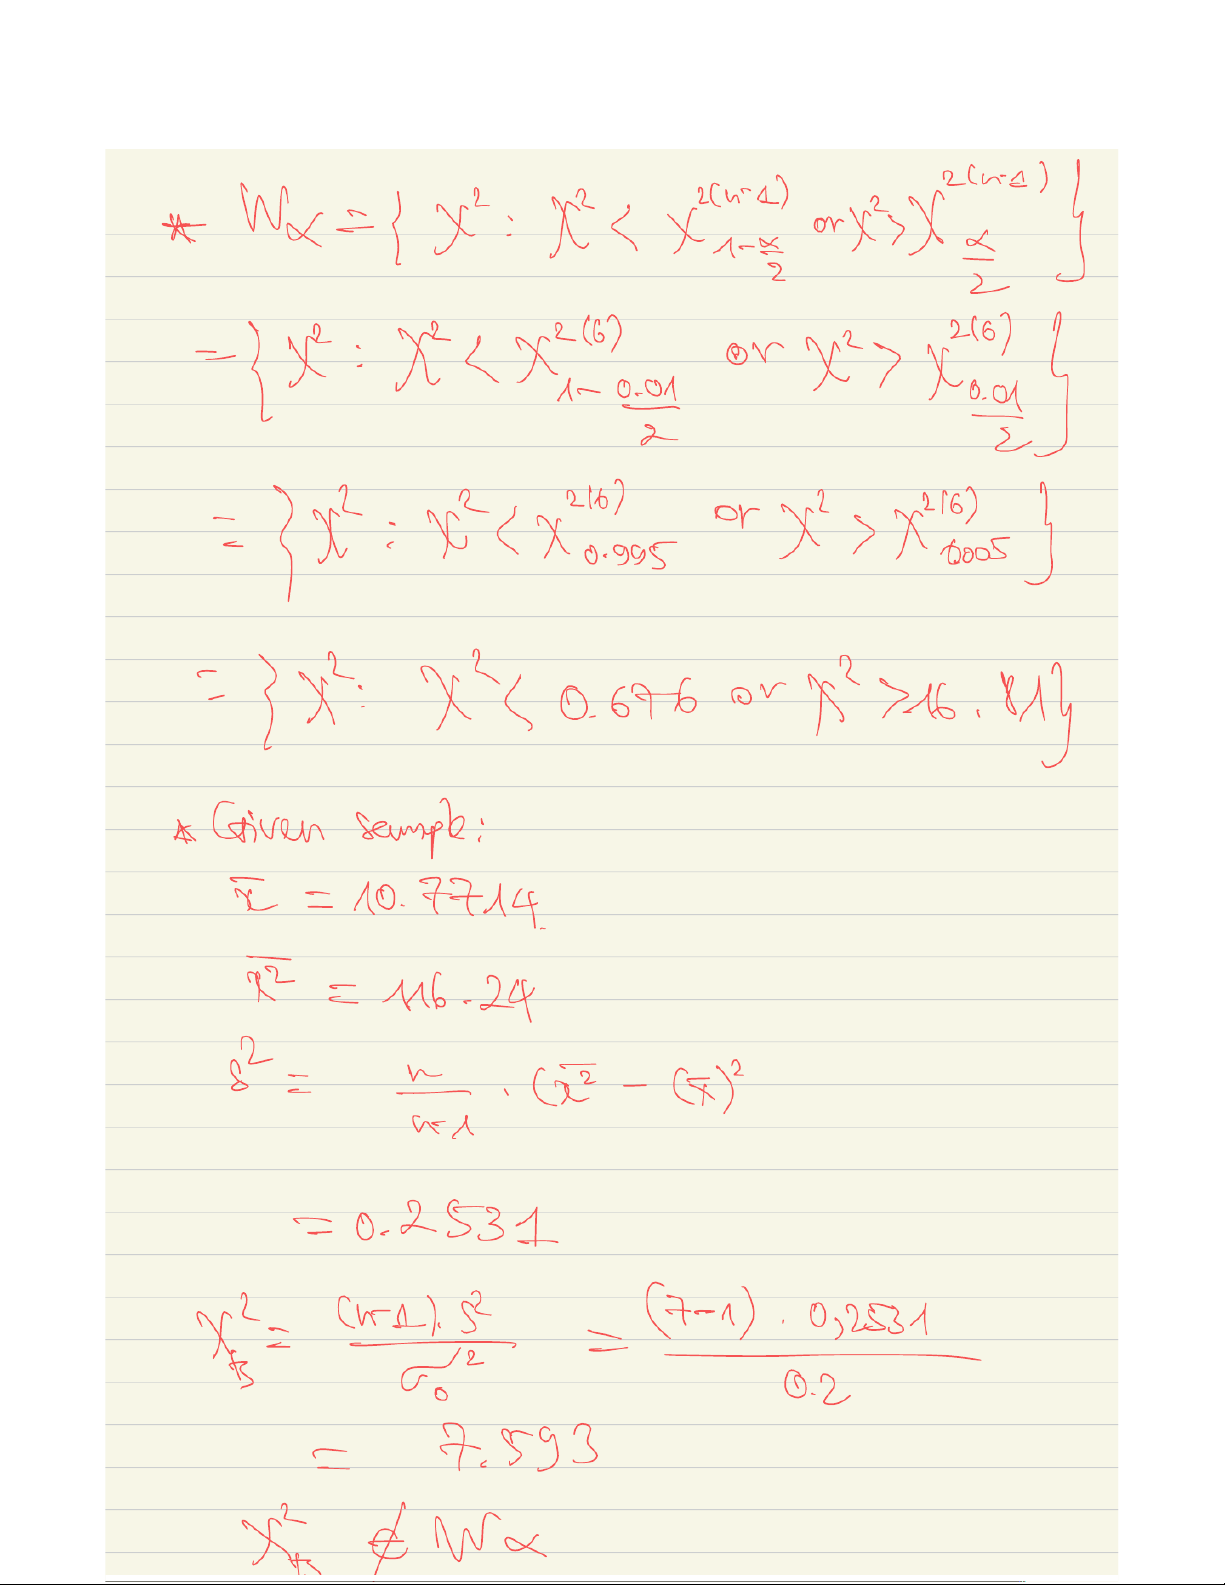 * Wα = { χ² : χ² < χ²⁽ⁿ⁻¹⁾_{1-α/2} or χ² > χ²⁽ⁿ⁻¹⁾_{α/2} }
= { χ² : χ² < χ²⁽⁶⁾_{1-0.01/2} or χ² > χ²⁽⁶⁾_{0.01/2} }
= { χ² : χ² < χ²⁽⁶⁾_{0.995} or χ² > χ²⁽⁶⁾_{0.005} }
= { χ² : χ² < 0.676 or χ² > 16.81 }
* Given sample:
x̄ = 10.7714
\overline{x²} = 116.24
s² = n/(n-1) . (\overline{x²} - (x̄)²
= 0.2531
χ²_{ts} = (n-1).s²/σ₀² = (7-1) . 0,2531/0.2
= 7.593
χ²_{ts} ∉ Wα